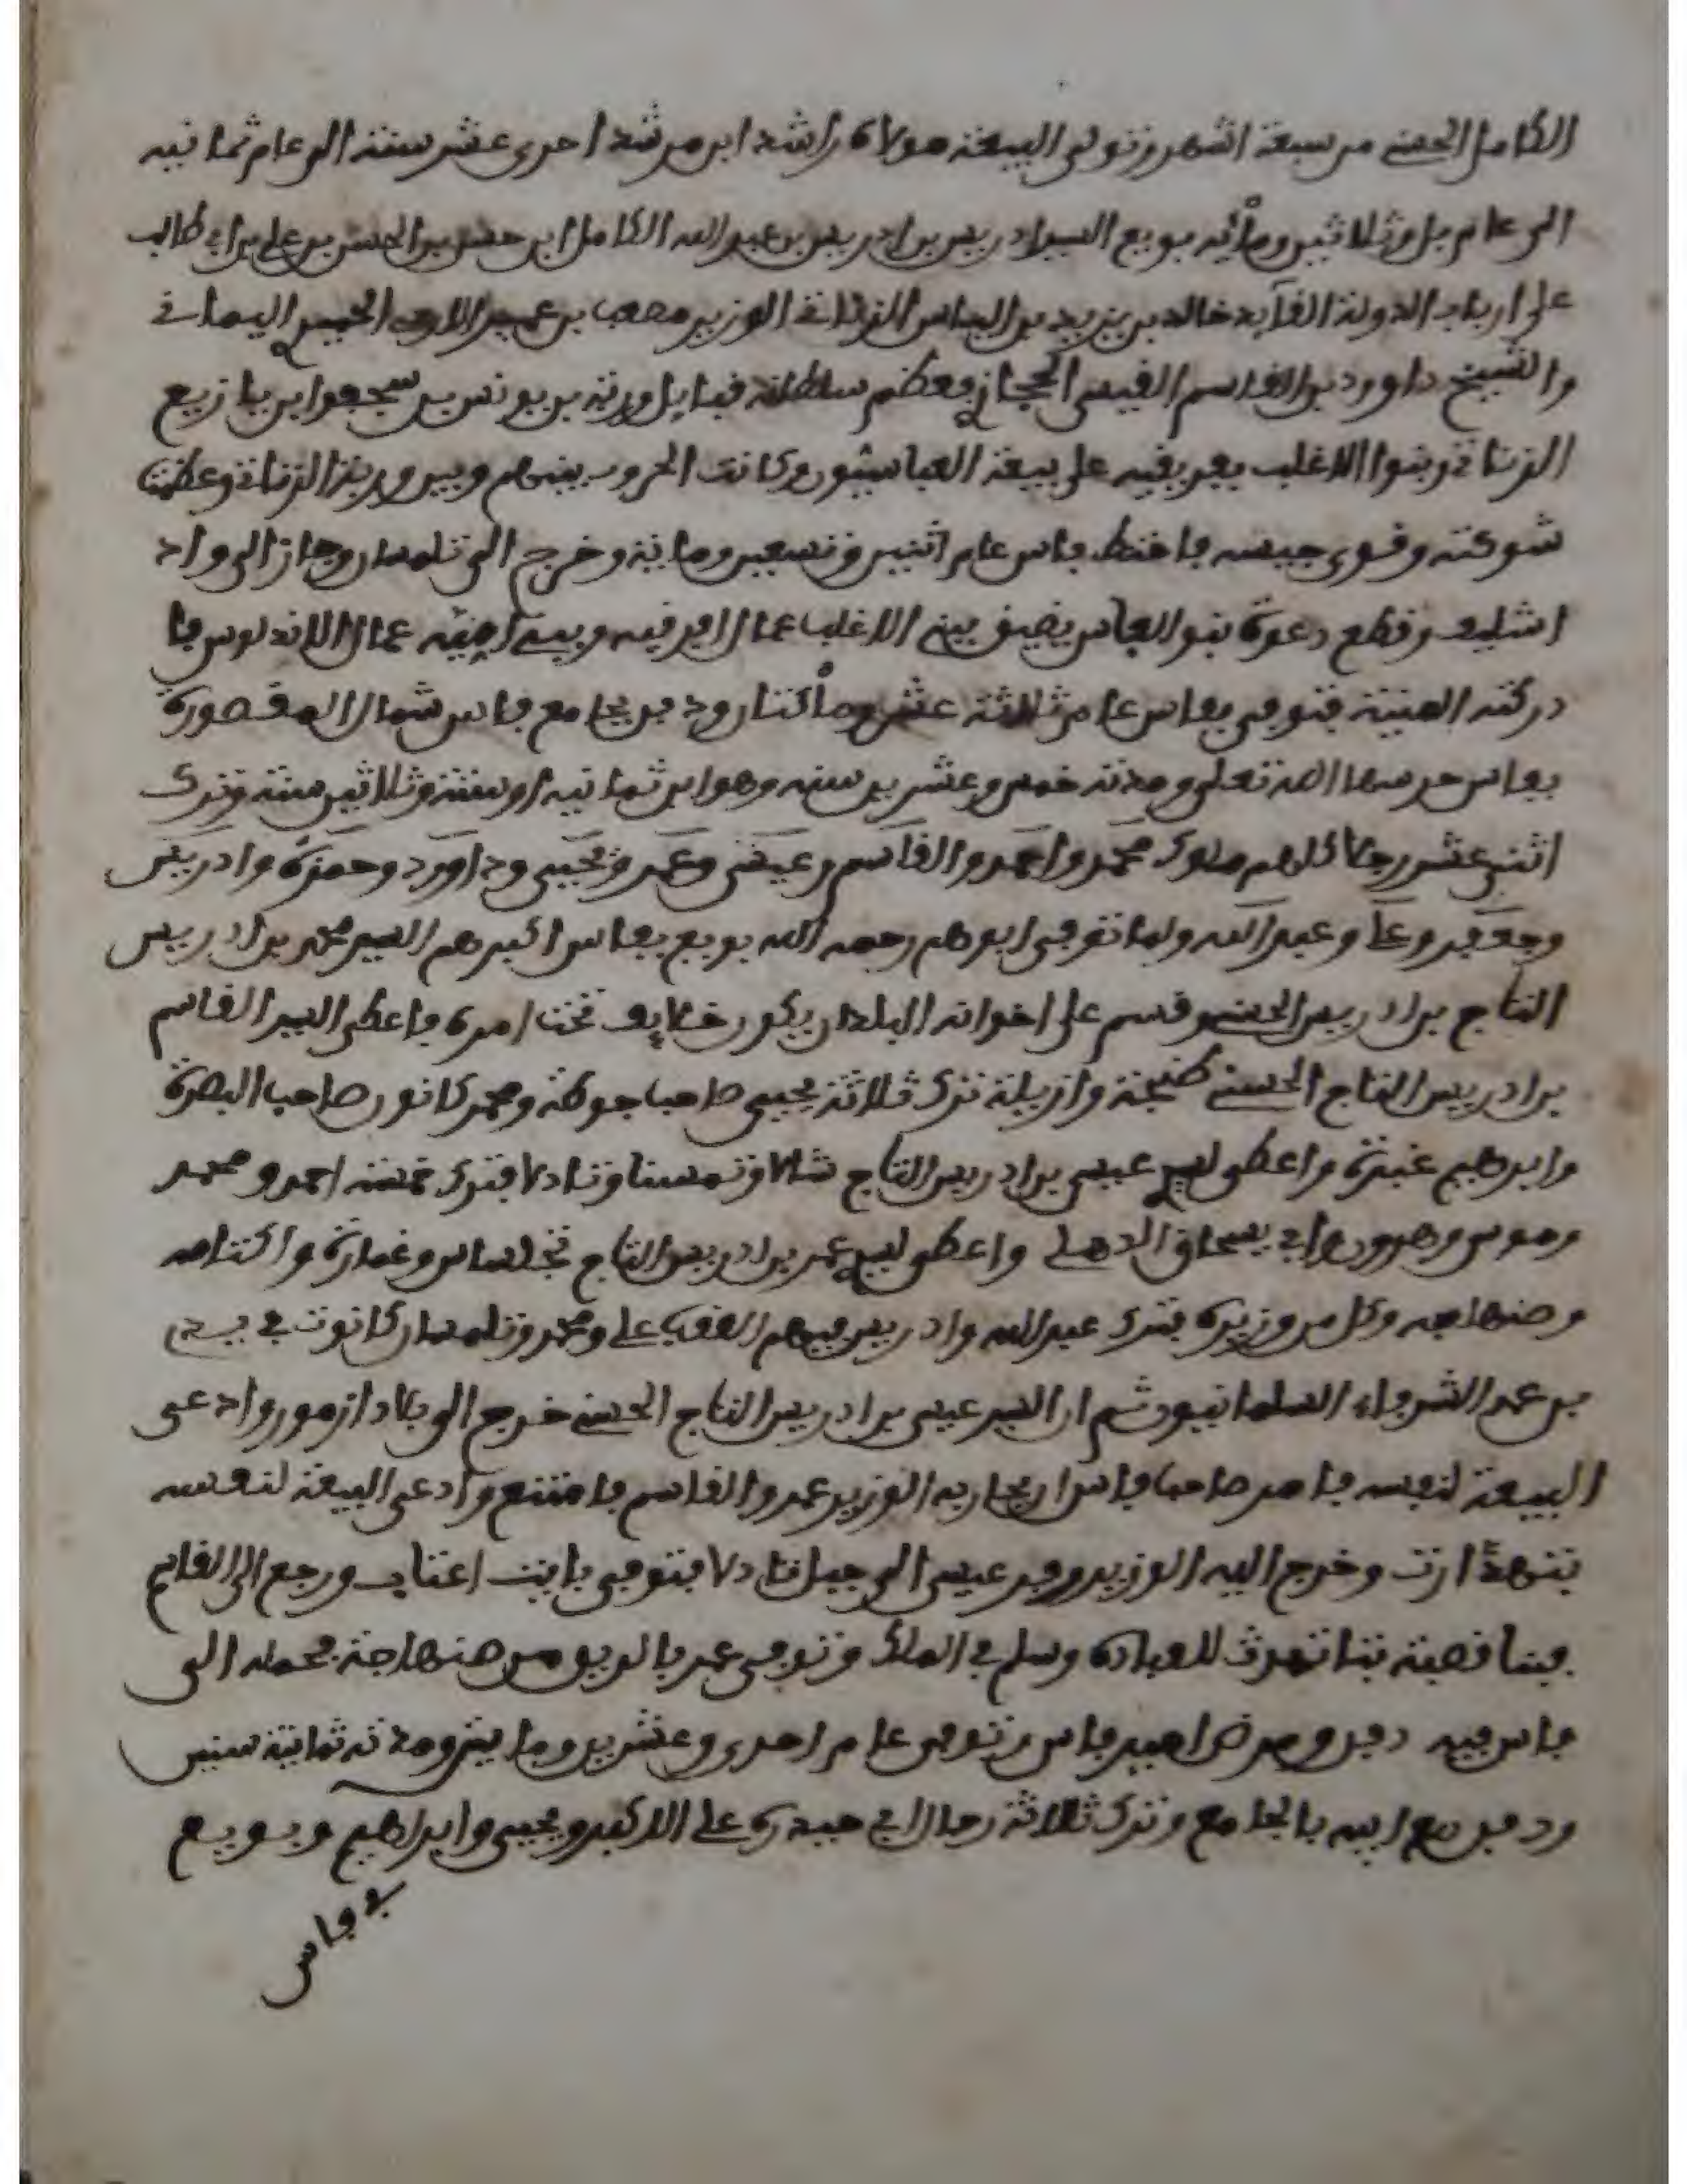 الكامل الحسني من سبعة اشهر وتولى البيعة مولاه راشد ابن مرشد احدى عشر سنة الى عام ثمانيه
الى عام بل وثلاثين ومائه بويع السيد ادريس بن ادريس بن عبد الله الكامل ابن حسن بن الحسن بن علي بن ابي طالب
على ارباب الدولة القآيد خالد بن يزيد بن الياس الزناتي الوزير مصعب بن عمير الازدي اليماني
والشيخ داوود بن القاسم القيسي الحجازي معظم سلطانه قبايل ورية بن يونس بن سجعوا بن يازيع
الزناتي وبنوا الاغلب بافريقيه على بيعة العباسيون وكانت الحروب بينهم وبين الزناتي وعظمت
شوكته وقوى جيشه فاختط فاس عام اثنين وتسعين ومايئة وخرج الى تلمسان وجاز الى واد
اشليف وقطع دعوة بنو العباس يضيف بين الاغلب عمال افرقيه وبين امية عمال الاندلوس فا
دركته المنية فتوفي بفاس عام ثلاثة عشر ومأتنان ودفن بجامع فاس شمال المقصورة
بفاس حرسها الله تعلى ومدته خمس وعشرين سنه وهو ابن ثمانيه اوستة وثلاثين سنة وترك
اثنى عشر رجلا كلهم ملوك محمد واحمد والقاسم وعيسى وعمر ويحيى وداوود وحمزة وادريس
وجعفر وعلي وعبد الله ولما توفى ابوهم رحمه الله بويع بفاس اكبرهم السيد محمد بن ادريس
التاج بن ادريس الحسني وقسم على اخوانه البلدان يكون خلايف تحت امره فاعطى السيد القاسم
بن ادريس التاج الحسني طنجة وازيلة ترك ثلاثة يحيى صاحب جوطة ومحمد كانون صاحب البصرة
وابرهيم غبرة واعطى لسيد عيسى بن ادريس التاج شالا وتمسنا وتادلا فترك خمسة احمد ومحمد
وموسى وهرون وابي يسحاق الدهلي واعطى لسيد عمر بن ادريس التاج تجساس وغمارة واكتامه
وصنهاجه وكل من وزيره فترك عبد الله وادريس فيهم العقب علي ومحمد وتلمسان كانوت في يد
بن عمه الشرفاء السلمانيون ثم ان السيد عيسى بن ادريس التاج الحسني خرج الى بلاد ازمور وادعى
البيعة لنفسه فامر صاحب فاس ان يحاربه الوزير عمر والقاسم فامتنع وادعى البيعة لنفسه
بتنهدارت وخرج اليه الوزير وفر عيسى الى جبل تادلا فتوفى بايت اعتاب ورجع الى القاسم
فبنا قصبة بتاتهرت للعبادة وسلم في الملك وتوفى عمر بالريف من صنهاجة محملا الى
فاس فيه دفن ومرض امير فاس وتوفى عام احدى وعشرين ومايتي ومدته ثمانية سنين
ودفن مع ابيه بالجامع وترك ثلاثة رجال ابي حيدرة علي الاكبر ويحيى وابراهيم وبويع
بفاس